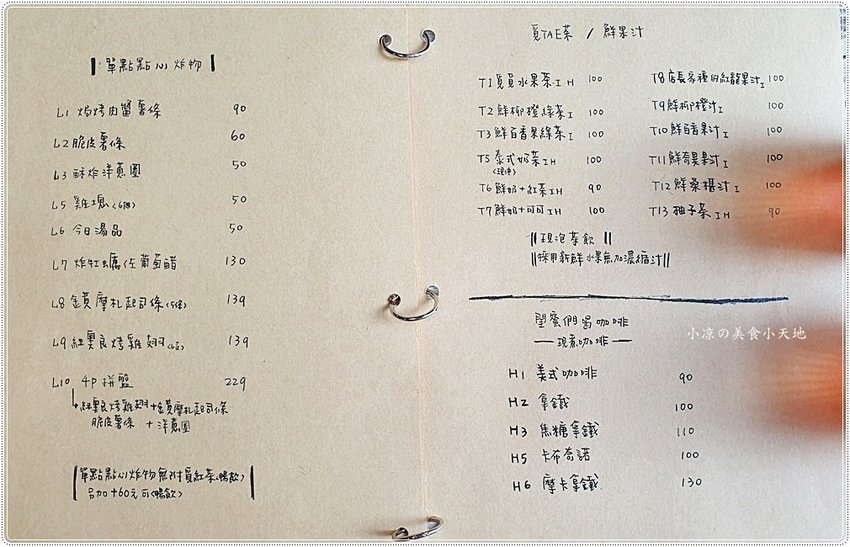 單點點心炸物
L1 焗烤肉醬薯條 90
L2 脆皮薯條 60
L3 酥炸洋蔥圈 50
L5 雞塊(6個) 50
L6 今日湯品 50
L7 炸牡蠣佐葡萄醋 130
L8 金黃摩札起司條(5條) 139
L9 紐奧良烤雞翅 139
L10 4P拼盤 229
紐奧良烤雞翅+金黃摩札起司條
脆皮薯條 + 洋蔥圈
單點點心炸物無附 紅茶(暢飲)
另加+60元可(暢飲)
覓TAE茶 / 鮮果汁
T1 覓覓水果茶 I H 100
T2 鮮柳橙綠茶 I 100
T3 鮮百香果綠茶 I 100
T5 泰式奶茶 I H 100
T6 鮮奶+紅茶 I H 90
T7 鮮奶+可可 I H 100
T8 店長家種的紅龍果汁 I 100
T9 鮮柳橙汁 I 100
T10 鮮百香果汁 I 100
T11 鮮奇異果汁 I 100
T12 鮮桑椹汁 I 100
T13 柚子茶 I H 90
現泡茶飲
採用新鮮水果無加濃縮汁
閨蜜們喝咖啡
現煮咖啡
H1 美式咖啡 90
H2 拿鐵 100
H3 焦糖拿鐵 110
H5 卡布奇諾 100
H6 摩卡拿鐵 130
小凉の美食小天地